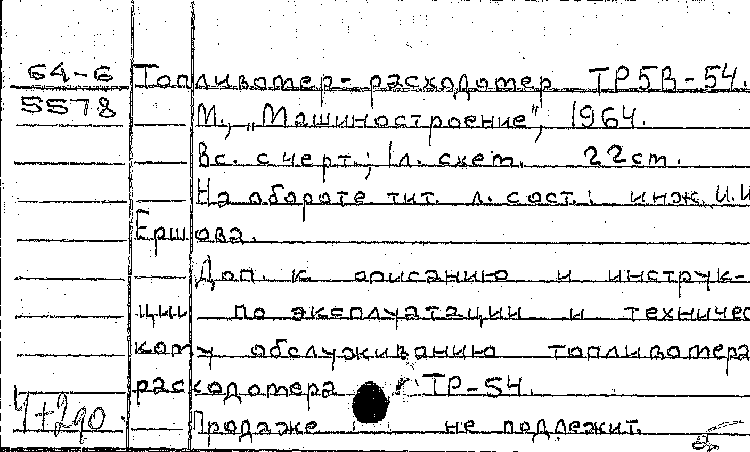 64-6
5578
Топливомер-расходомер ТР5В-54.
М., „Машиностроение", 1964.
Вс. с черт.; 1л. схем. 22 ст.
На обороте тит. л. сост.: инж. И.И
Ершова.
Доп. к описанию и инструк-
ции по эксплуатации и техничес
кому обслуживанию топливомера
расходомера ТР-54.
Продаже не подлежит.